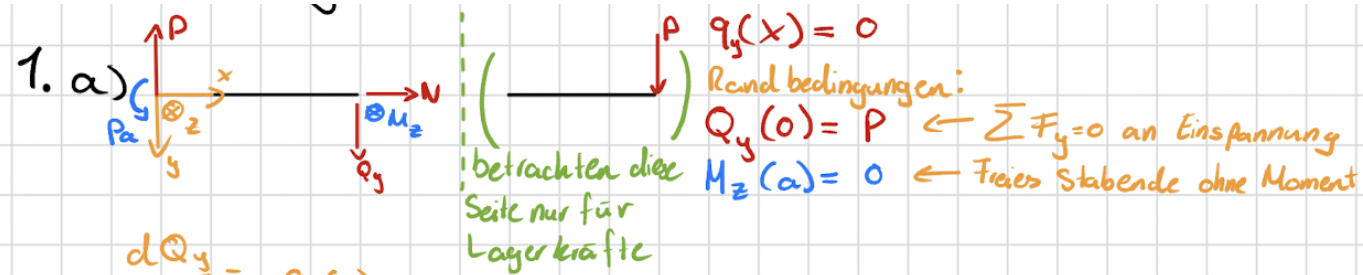 1. a)
P
x
z
y
Pa
N
M_z
Q_y
P
betrachten diese
Seite nur für
Lagerkräfte
q_y(x) = 0
Randbedingungen:
Q_y(0) = P ← ΣF_y=0 an Einspannung
M_z(a) = 0 ← Freies Stabende ohne Moment
dQ_y